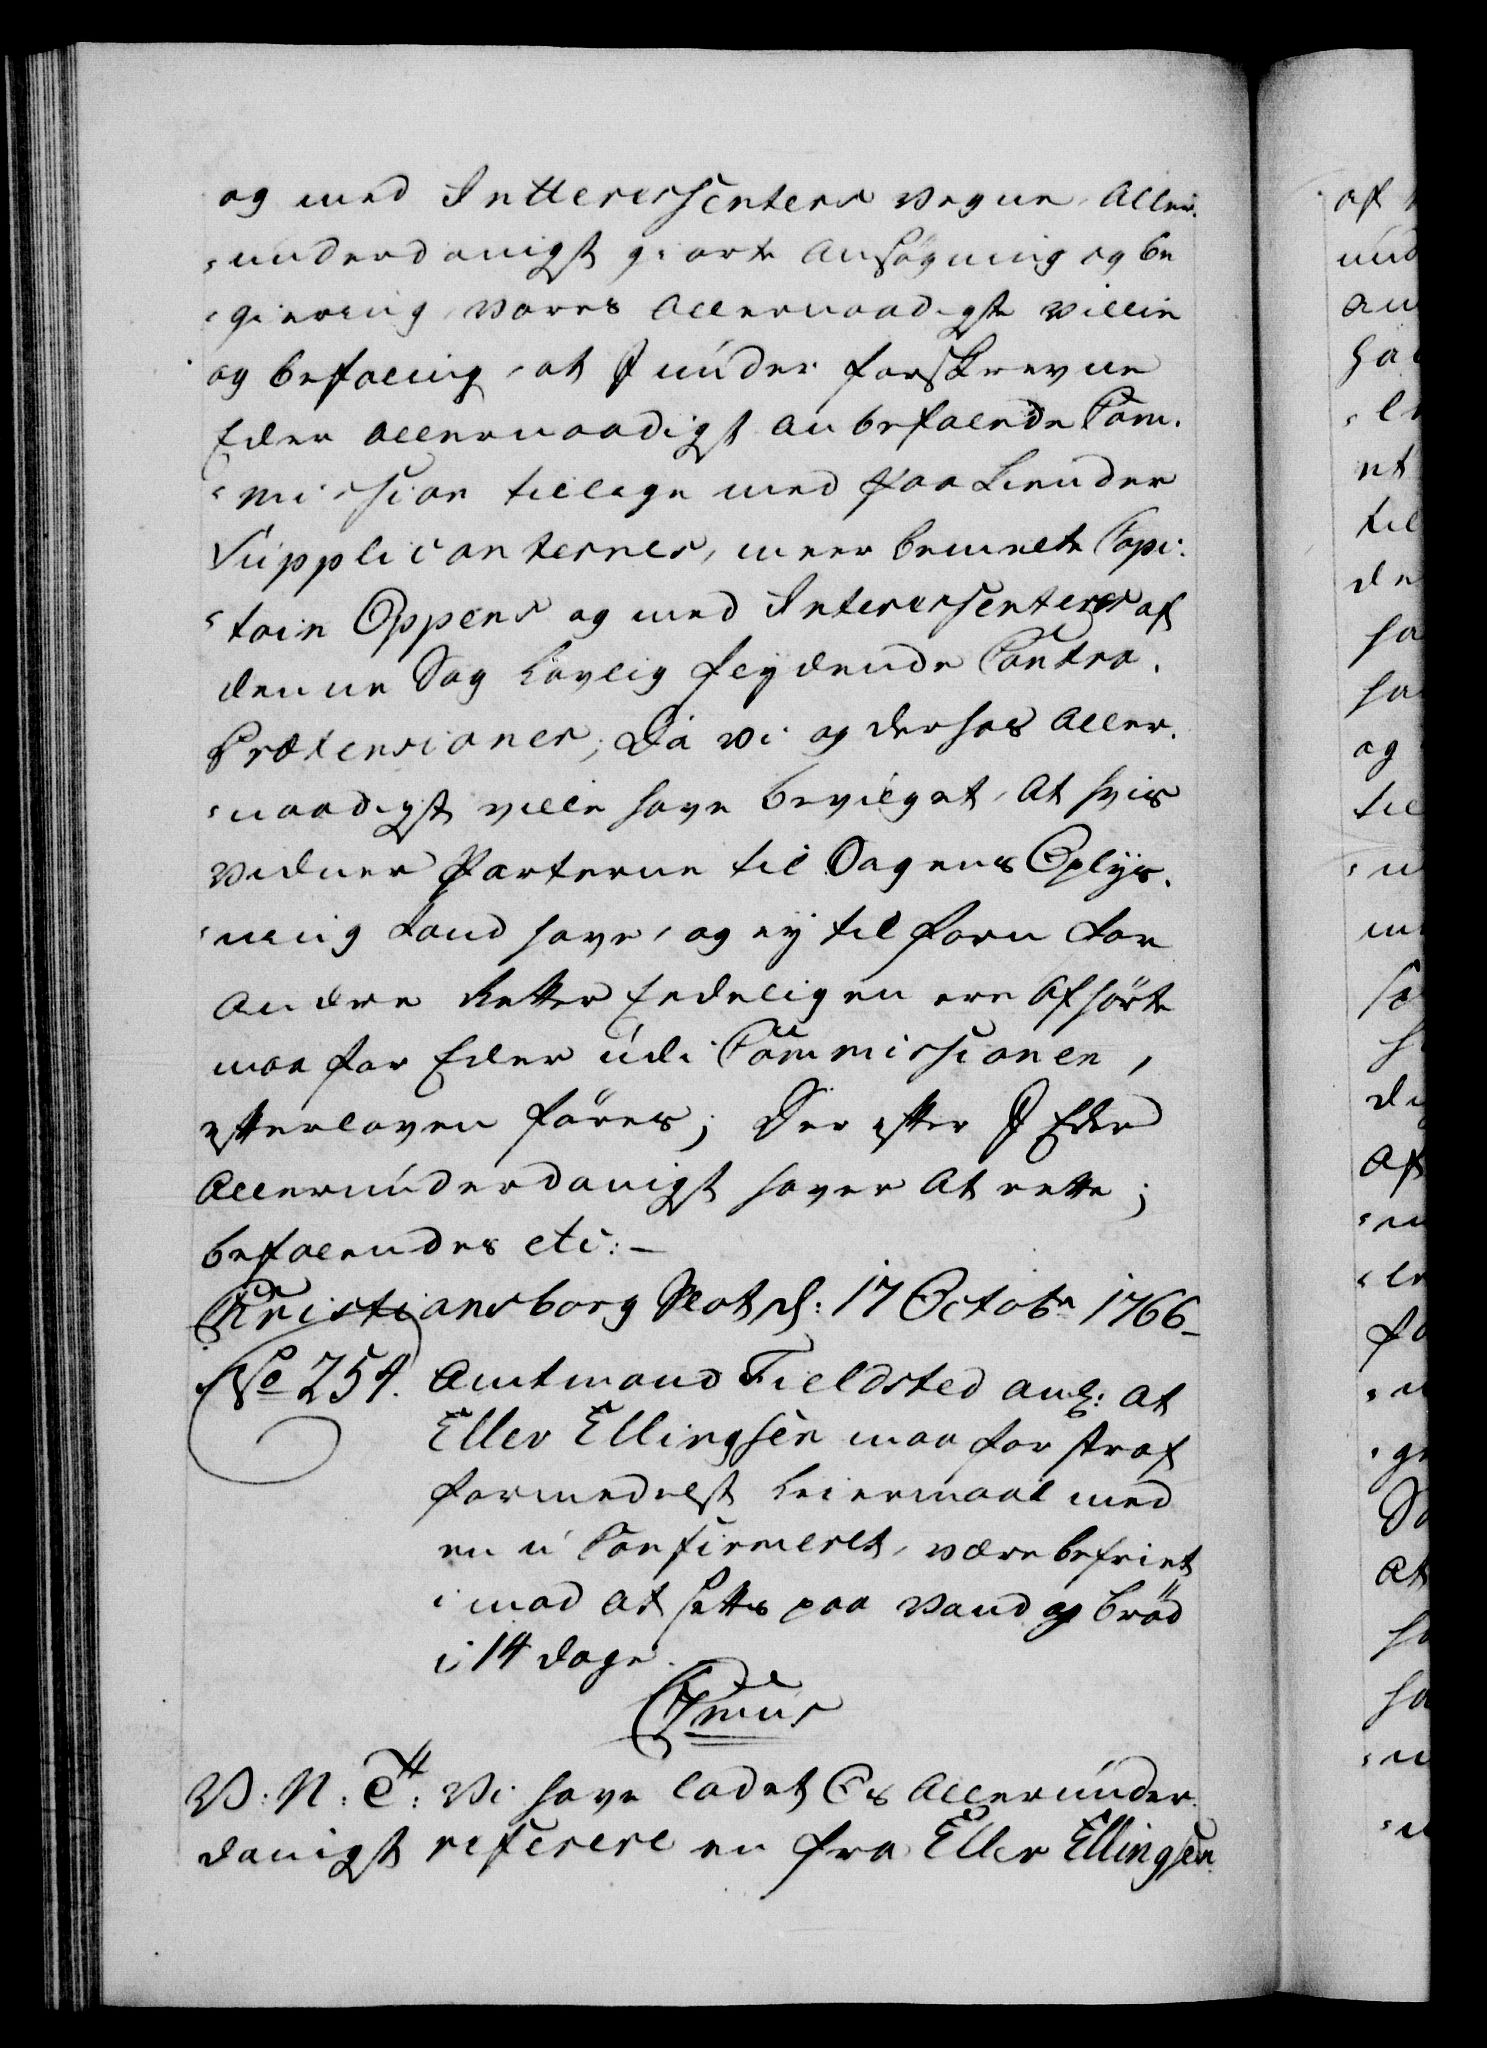 og med Intteressenters Vegne Aller-
underdanigst giorte Ansøgning og be
gierring, Vores Allernaadigste Villie
og befaling, at I under forskrevne
Eder Allernaadigst anbefalede Com-
mission tillige med paakiender
Supplicanternes, meer bemelte Capi-
tain Oppens og med Interessenteres af
denne Sag lovlig fleydende Contra-
Prætensioner; Da Vi og derhos Aller-
naadigst ville have bevilget, At hvis
Vidner Parterne til Sagens Oplys-
ning kand have, og ey tilforn for
Andre Retter Eedeligen ere Afhørte
maa for Eder udi Commissionen,
efterloven føres; Der efter I Eder
Allerunderdanigst haver At rette;
befalendes etc:
Christiansborg Slot d: 17 Octobr 1766
No 254. Amtmand Fieldsted anl: At
Eller Ellingsen maa for Straf
formedelst Leiermaal med
en u Confirmeret, være befriet
imod at settes paa Vand og brød
i 14 dage.
V: N: C: Vi have ladet Os Allerunder-
danigst referere en fra Eller Ellingsen